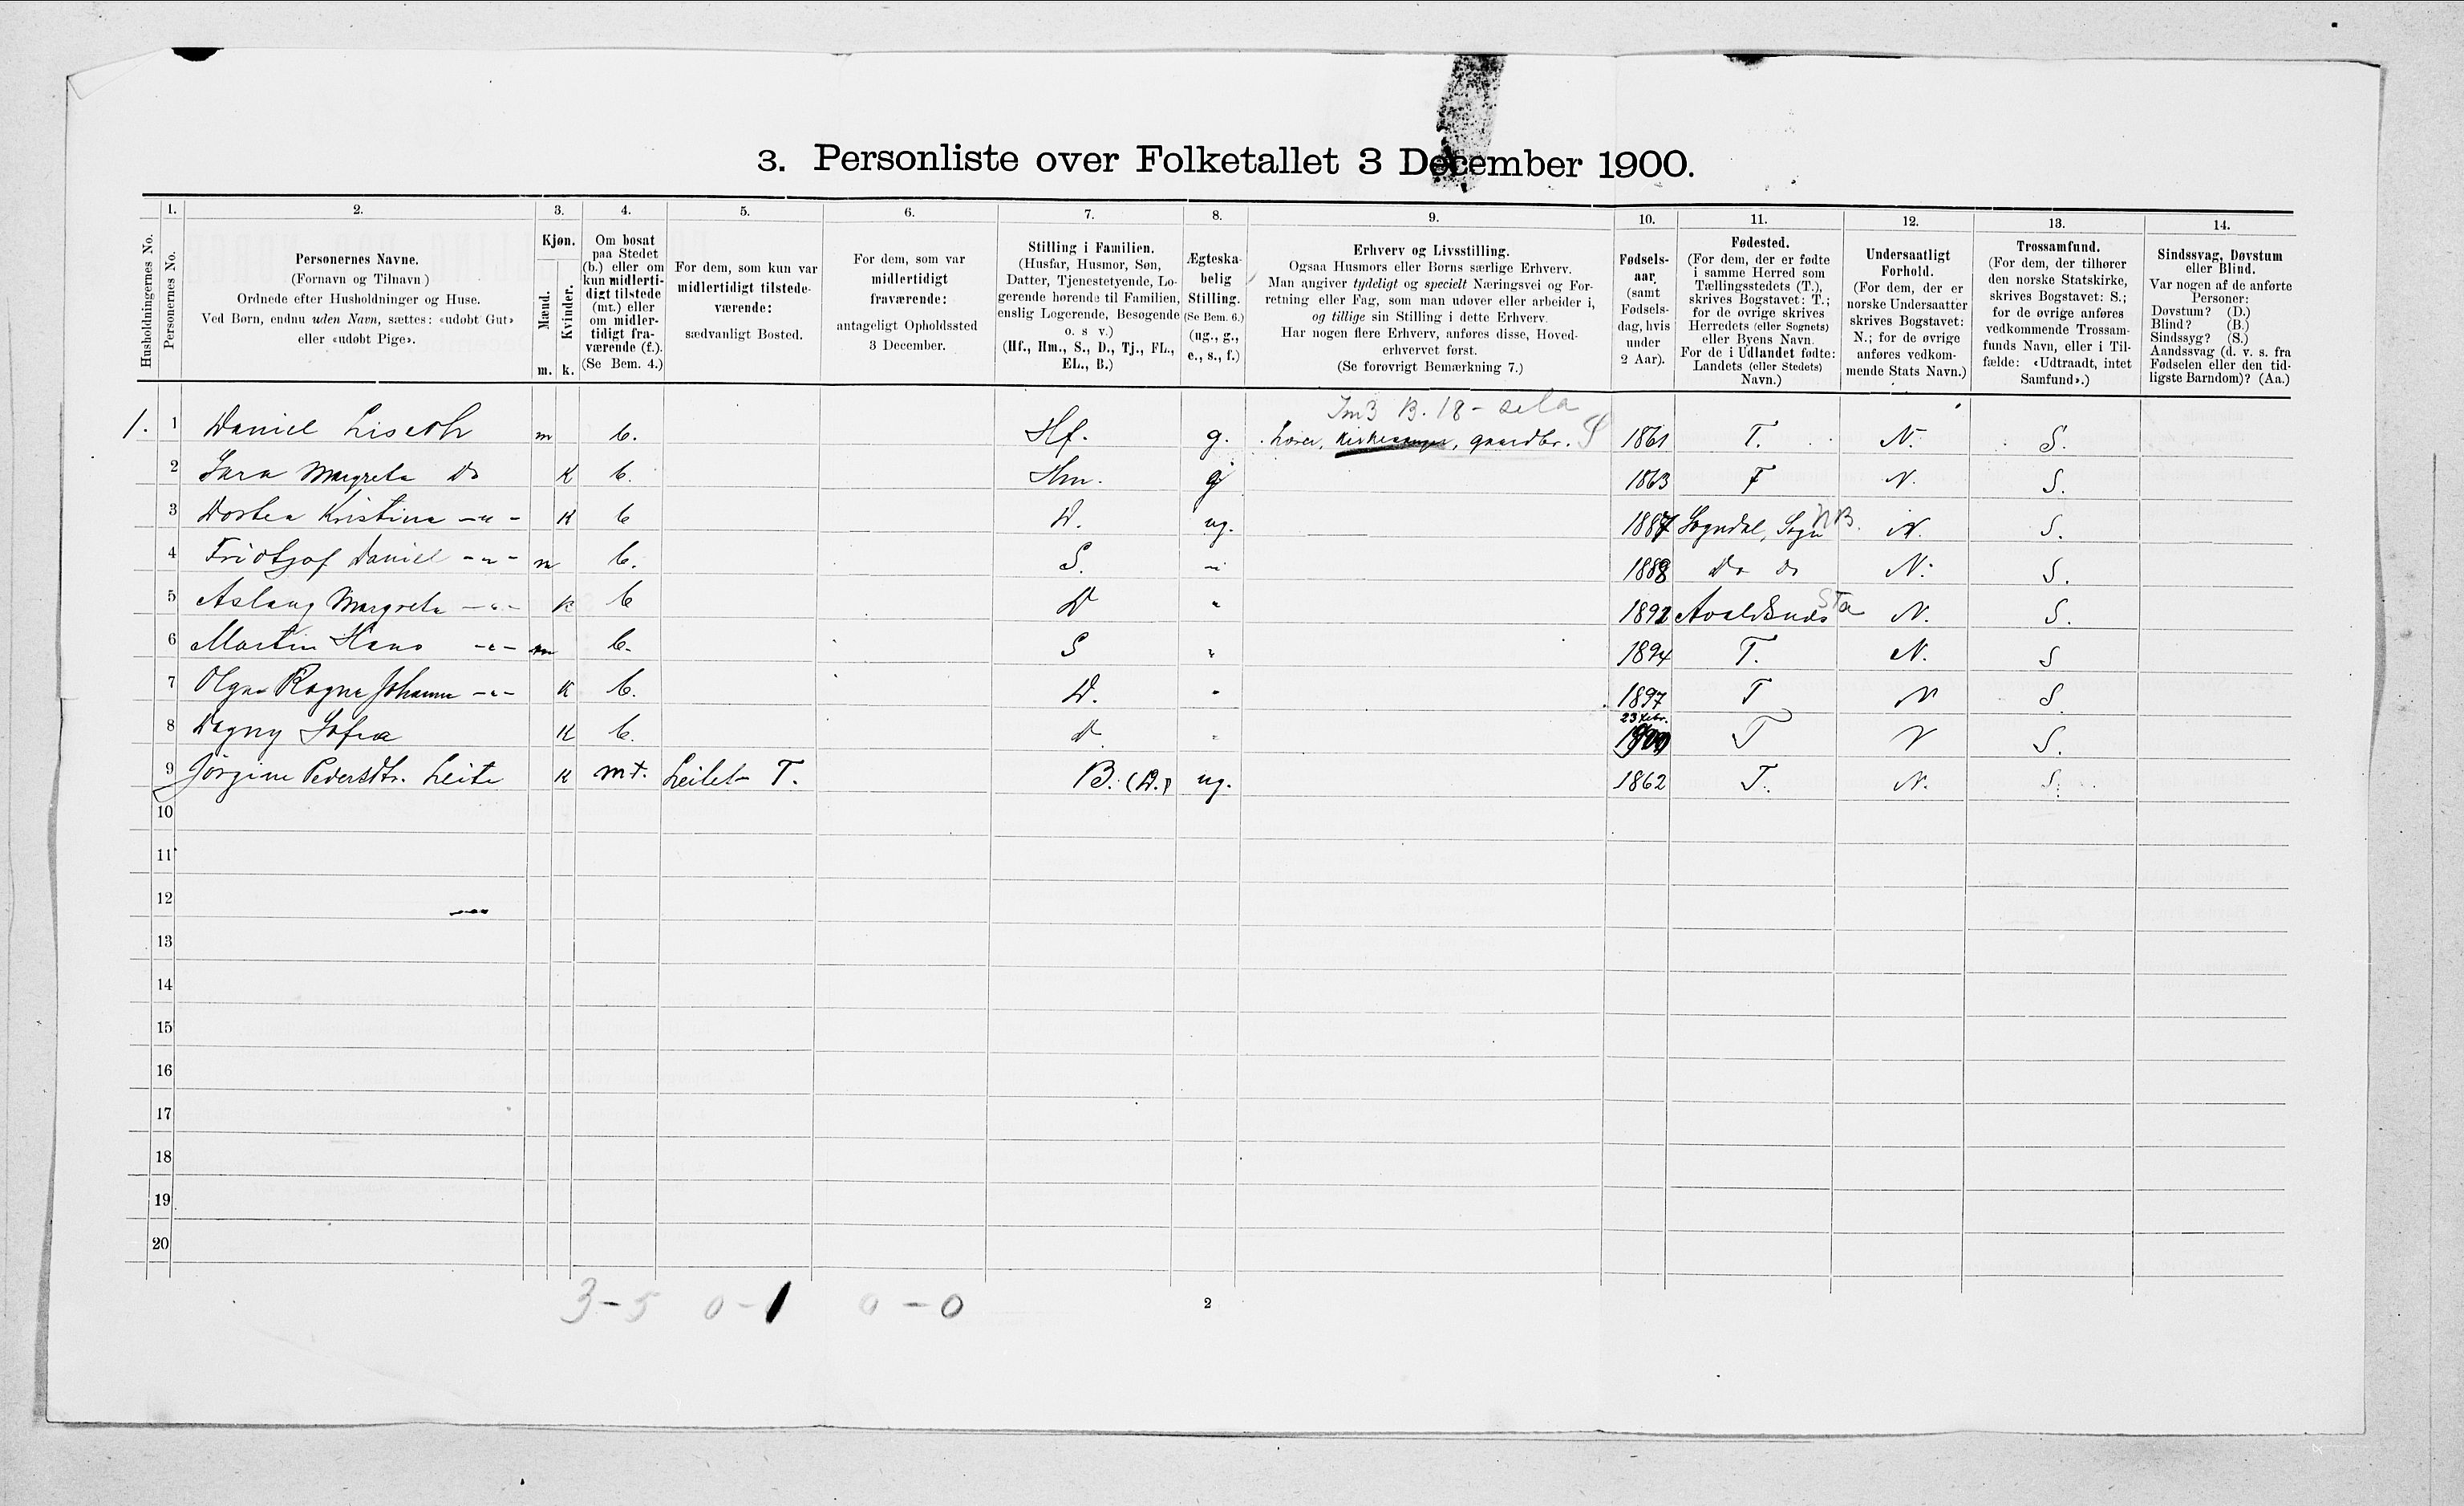 3. Personliste over Folketallet 3 December 1900.
Husholdningernes No.
1. Personernes No.
2. Personernes Navne.
(Fornavn og Tilnavn)
Ordnede efter Husholdninger og Huse.
Ved Børn, endnu uden Navn, sættes: «udøbt Gut»
eller «udøbt Pige».
3. Kjøn.
Mænd. m.
Kvinder. k.
4. Om bosat
paa Stedet
(b.) eller om
kun midlerti-
digt tilstede
(mt.) eller
om midler-
tidigt fra-
værende (f.).
(Se Bem. 4.)
5. For dem, som kun var
midlertidigt tilstede-
værende:
sædvanligt Bosted.
6. For dem, som var
midlertidigt
fraværende:
antageligt Opholdssted
3 December.
7. Stilling i Familien.
(Husfar, Husmor, Søn,
Datter, Tjenestetyende, Lo-
gerende hørende til Familien,
enslig Logerende, Besøgende
o. s v.)
(Hf., Hm., S., D., Tj., FL.,
EL., B.)
8. Ægteska-
belig
Stilling.
(Se Bem. 6.)
(ug., g.,
e., s., f.)
9. Erhverv og Livsstilling.
Ogsaa Husmors eller Børns særlige Erhverv.
Man angiver tydeligt og specielt Næringsvei og For-
retning eller Fag, som man udøver eller arbeider i,
og tillige sin Stilling i dette Erhverv.
Har nogen flere Erhverv, anføres disse, Hoved-
erhvervet først.
(Se forøvrigt Bemærkning 7.)
10. Fødsels-
aar
(samt
Fødsels-
dag, hvis
under
2 Aar).
11. Fødested.
(For dem, der er fødte
i samme Herred som
Tællingsstedets (T.),
skrives Bogstavet: T.;
for de øvrige skrives
Herredets (eller Sognets)
eller Byens Navn.
For de i Udlandet fødte:
Landets (eller Stedets)
Navn.)
12. Undersaatligt
Forhold.
(For dem, der er
norske Undersaatter
skrives Bogstavet:
N.; for de øvrige
anføres vedkom-
mende Stats Navn.)
13. Trossamfund.
(For dem, der tilhører
den norske Statskirke,
skrives Bogstavet: S.;
for de øvrige anføres
vedkommende Trossam-
funds Navn, eller i Til-
fælde: «Udtraadt, intet
Samfund».)
14. Sindssvag, Døvstum
eller Blind.
Var nogen af de anførte
Personer:
Døvstum? (D.)
Blind? (B.)
Sindssyg? (S.)
Aandssvag (d. v. s. fra
Fødselen eller den tid-
ligste Barndom)? (Aa.)
B. 18 -
1. 1 Daniel Liseth m b. Hf. g. Lærer, Kirkesanger, gaardbr. S 1861 T. N. S.
2 Sara Margreta Do K b. Hm. g 1863 T N. S.
3 Dortea Kristina -"- K b D. ug. 1887 Sogndal, Sogn NB. N. S.
4 Fridtjof Daniel -"- m b. S. -"- 1888 Do Do N. S.
5 Aslaug Margreta -"- K b D " 1892 Avaldsnes Sta N. S.
6 Martin Hans -"- m b. S " 1894 T. N. S
7 Olga Ragna Johanne -"- K b. D. " 1897 T N S.
8 Dagny Sofia K b. D. " 23 febr. 1900 T N S.
9 Jörgine Pedersdtr. Leite K mt. Leitet T. B. (D.) ug. 1862 T. N. S.
10
11
12
13
14
15
16
17
18
19
20
3 - 5 0 - 1 0 - 0
2